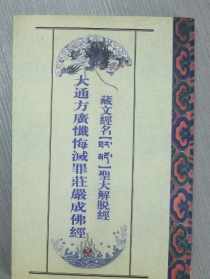 藏文經名【】聖大解脫經
大通方廣懺悔滅罪莊嚴成佛經